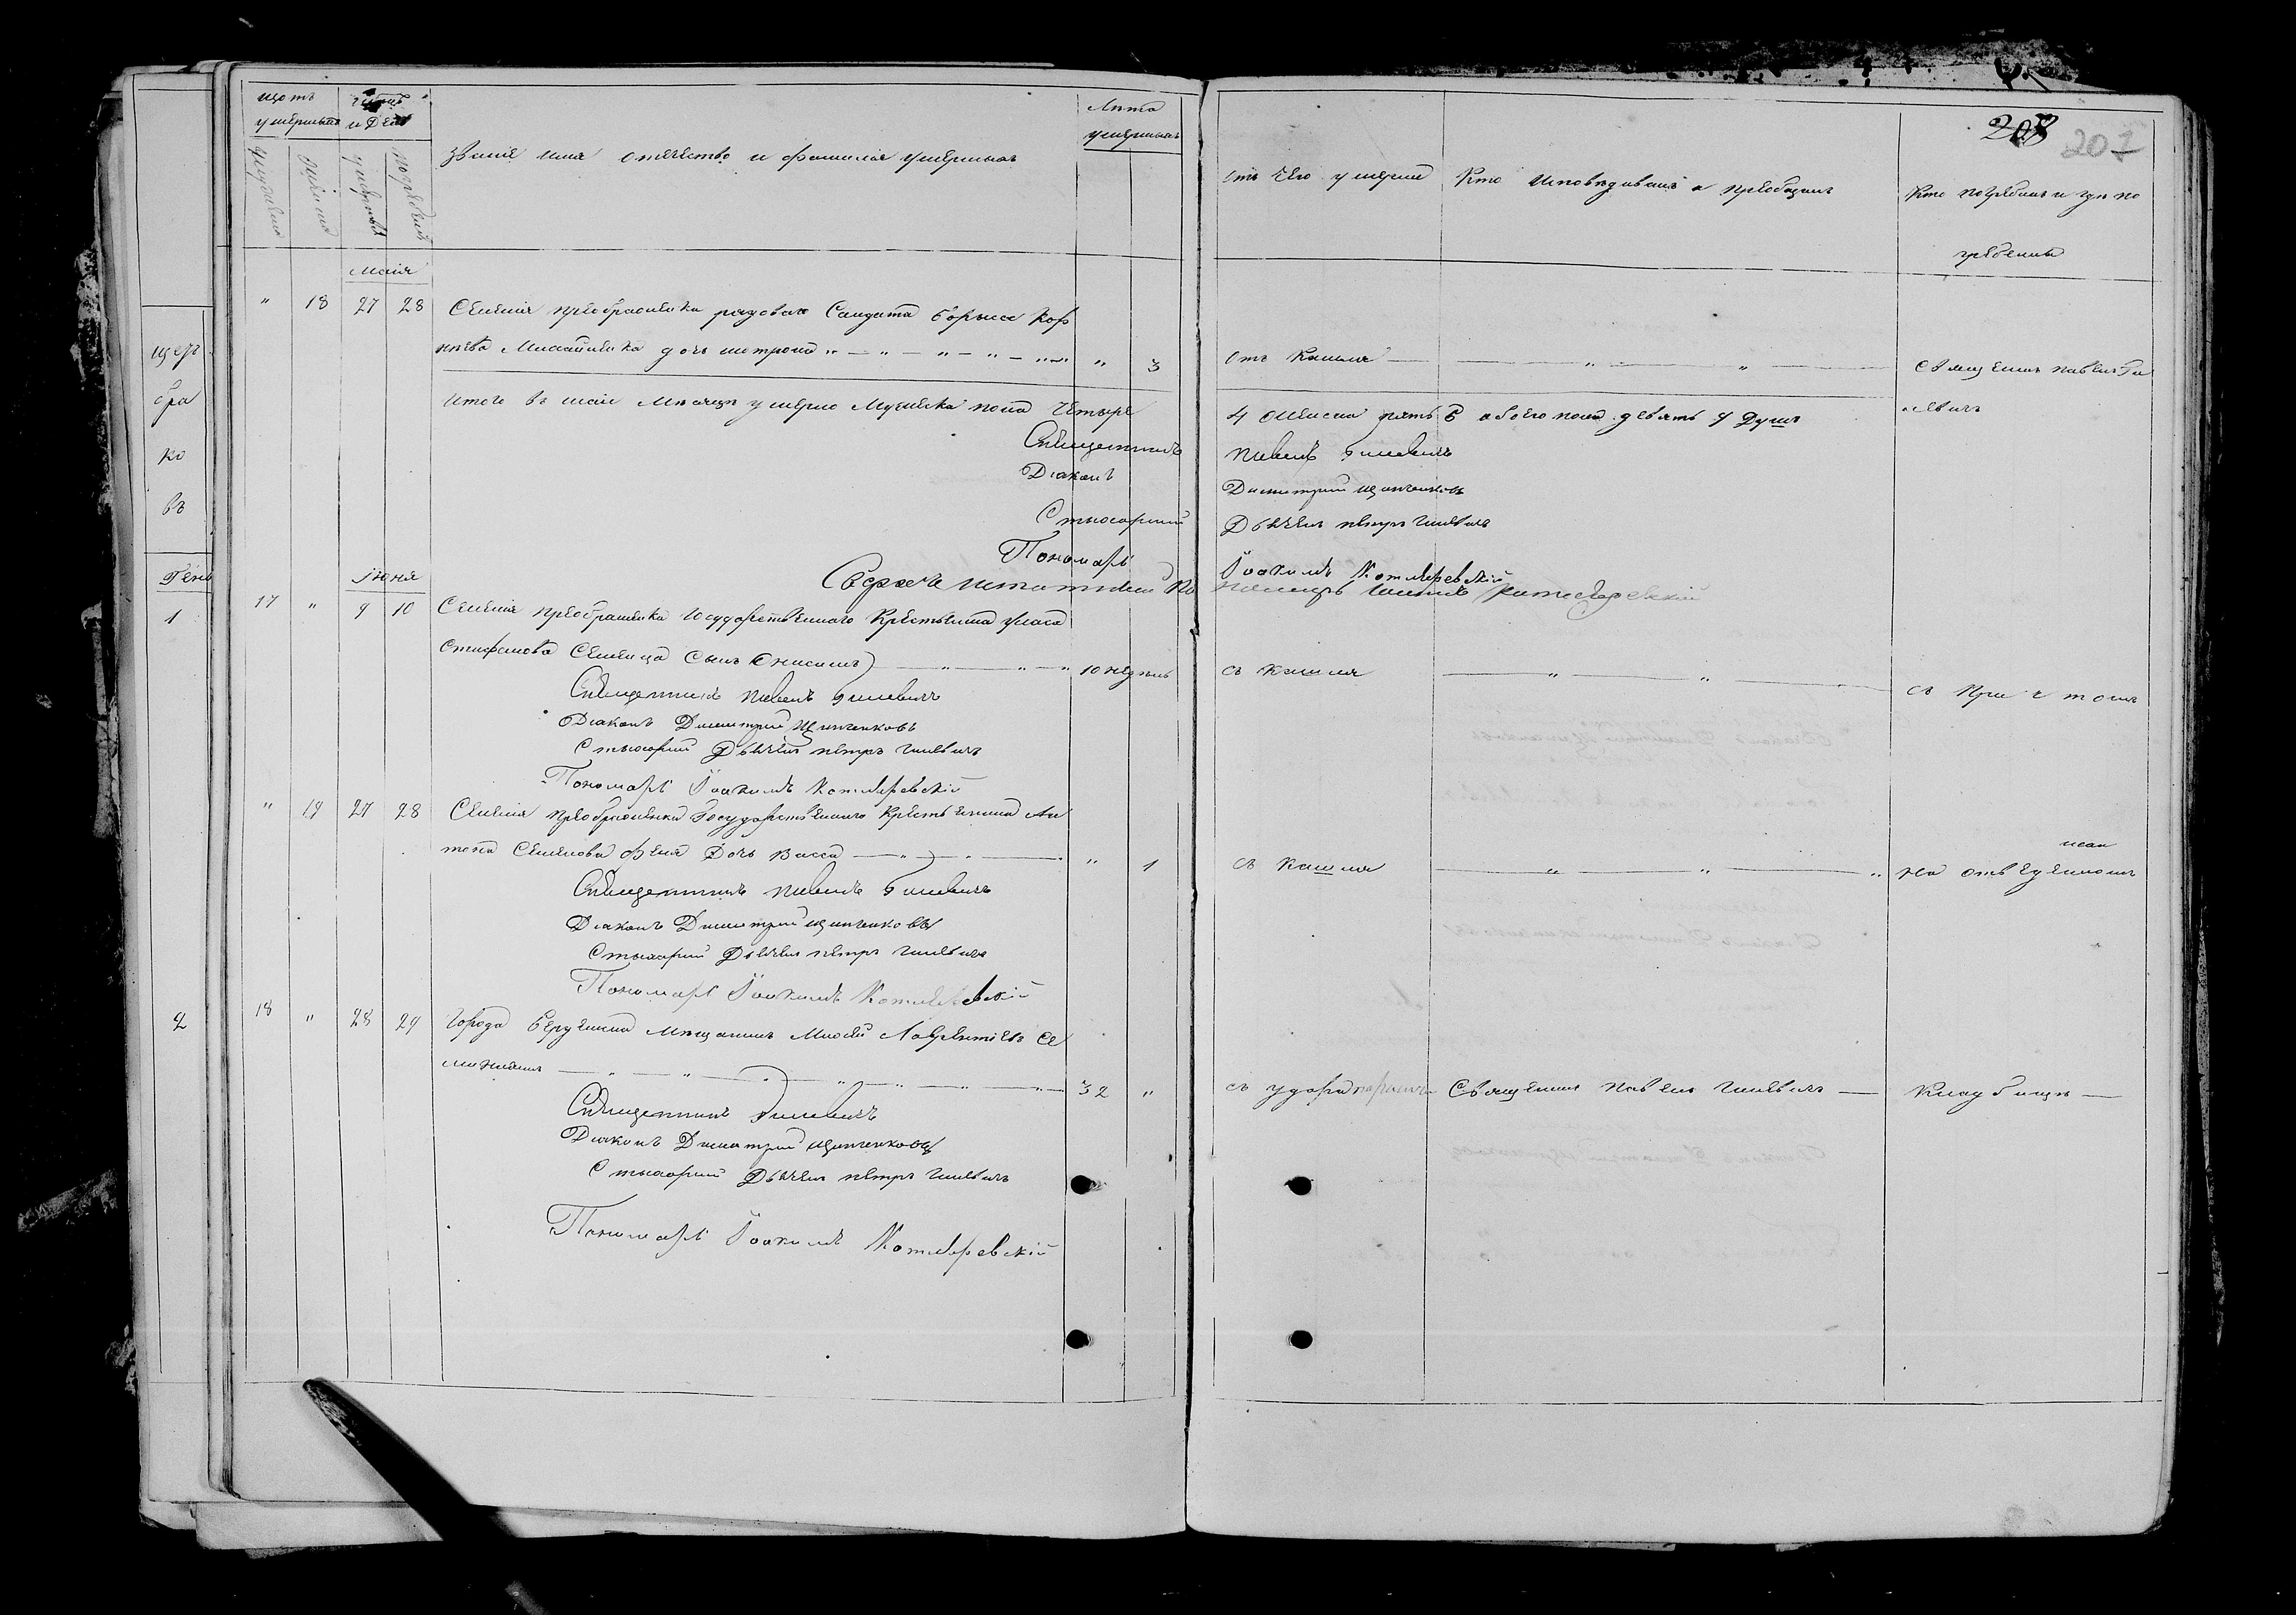 щотъ умершыхъ
и День
Звание имя отечество и фамилия умершихъ
Лѣта умершихъ
Отъ чего умерли
Кто исповѣдивалъ и приобщалъ
Кто погребалъ и гдѣ по
гребены
208
207
мужеска
женска
умертвія
погребенія
Маія
" 18 27 28 Селения преображенки рядоваго Солдата Борыса Кор
нѣева Михайленка дочь Мотрона " — " — " — " " 3
отъ Кашля — " "
Священикъ Павелъ Ги
левичъ
Итого въ маи Месяцѣ умерло Мужеска пола Четыре
4 Женска пять 5 обоего пола девять 9 Душъ
Священникъ Павелъ Гилевичъ
Діаконъ Димитрий Щитинковъ
Стихарний Дьячекъ петръ Гилевичъ
Пономарь Іоакимъ Котляревскій
Сверхъ штатний по
номарь Котляревский
Іюня
17 " 9 10 Селения преображенка Государственнаго Крестьянина Уласа
Стифанова Семенца Сынъ Онисимъ — " — " — " 10 недѣль
съ Кашля — " "
съ Причтомъ
Священникъ Павелъ Гилевичъ
Діаконъ Димитрий Щитинковъ
Стихарний Дьячекъ петръ Гилевичъ
Пономарь Іоакимъ Котляревскій
" 19 27 28 Селения преображенки Государственнаго Крестьянина Ан
тона Семенова Дочь Васса — " — " " 1
съ Кашля — " " "
на отведенномъ
Священникъ Павелъ Гилевичъ
Діаконъ Димитрий Щитинковъ
Стихарний Дьячекъ петръ Гилевичъ
Пономарь Іоакимъ Котляревскій
18 " 28 29 Города Мещанинъ Лаврентіевъ Се
— " — " — " — " — " 32 "
съ удара
Священикъ Павелъ Гилевичъ —
Кладбищѣ —
Священникъ Гилевичъ
Діаконъ Димитрий Щитинковъ
Стихарний Дьячекъ петръ Гилевичъ
Пономарь Іоакимъ Котляревскій
1
2
бра
ко
въ